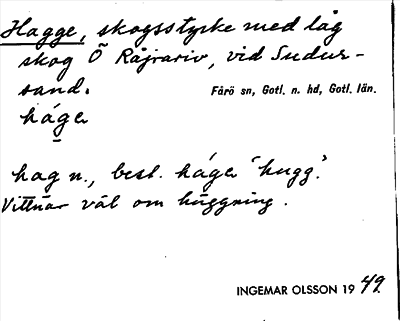 Hagge, skogsstycke med låg
skog Ö Råjrariv, vid Sudur-
sand.
Fårö sn, Gotl. n. hd, Gotl. län.
háge
hag n., best. háge 'hugg'.
Vittnar väl om huggning.
INGEMAR OLSSON 1949.